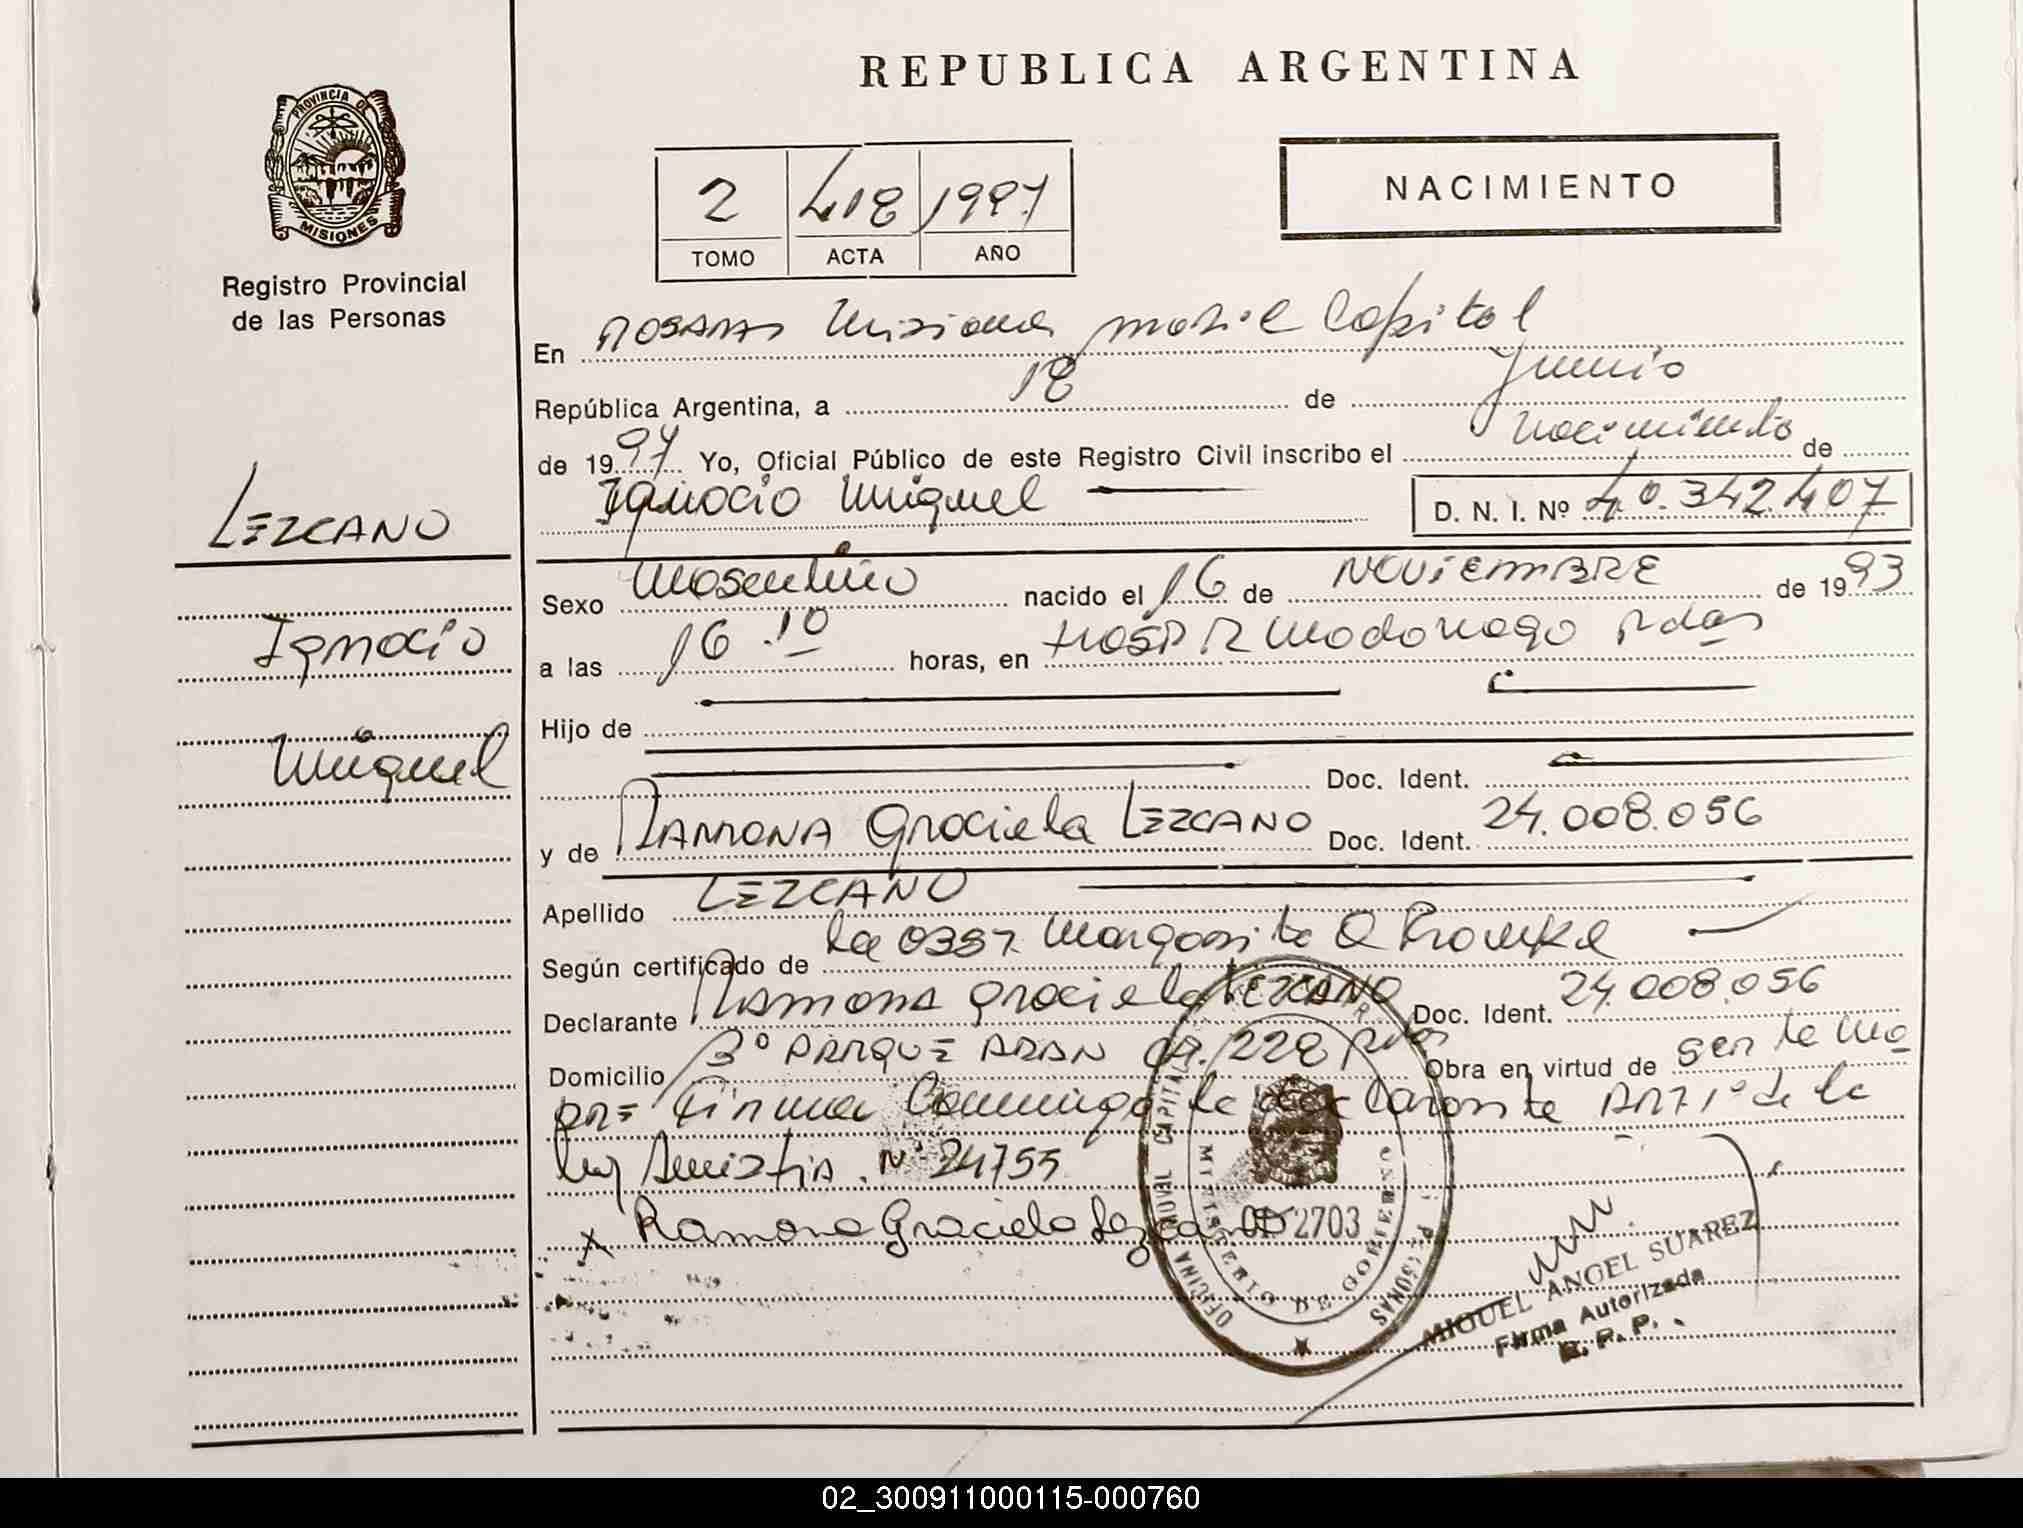 REPUBLICA ARGENTINA
PROVINCIA DE
MISIONES
Registro Provincial
de las Personas
2 418 1997
TOMO ACTA AÑO
NACIMIENTO
En Posadas Misiones Capital
República Argentina, a 18 de Junio
de 1997 Yo, Oficial Público de este Registro Civil inscribo el Nacimiento de
Ignacio Miguel D. N. I. Nº 40.342.407
LEZCANO
Ignacio
Miguel
Sexo Masculino nacido el 16 de NOVIEMBRE de 1993
a las 16.10 horas, en HOSP R Madariaga Pdas
Hijo de
Doc. Ident.
y de RAMONA Graciela LEZCANO Doc. Ident. 24.008.056
Apellido LEZCANO
Según certificado de la Obst. Margarita
Declarante RAMONA Graciela LEZCANO Doc. Ident. 24.008.056
Domicilio Bº PARQUE ADAM CA. 228 Pdas Obra en virtud de ser la ma
DRE Firma Conmigo la declarante ART 1º de la
Ley Amistia. Nº 24755
x Ramona Graciela Lezcano 2703
OFICINA MOVIL CAPITAL
PERSONAS
MINISTERIO DE GOBIERNO
MIGUEL ANGEL SUAREZ
Firma Autorizada
R. P. P.
02_300911000115-000760